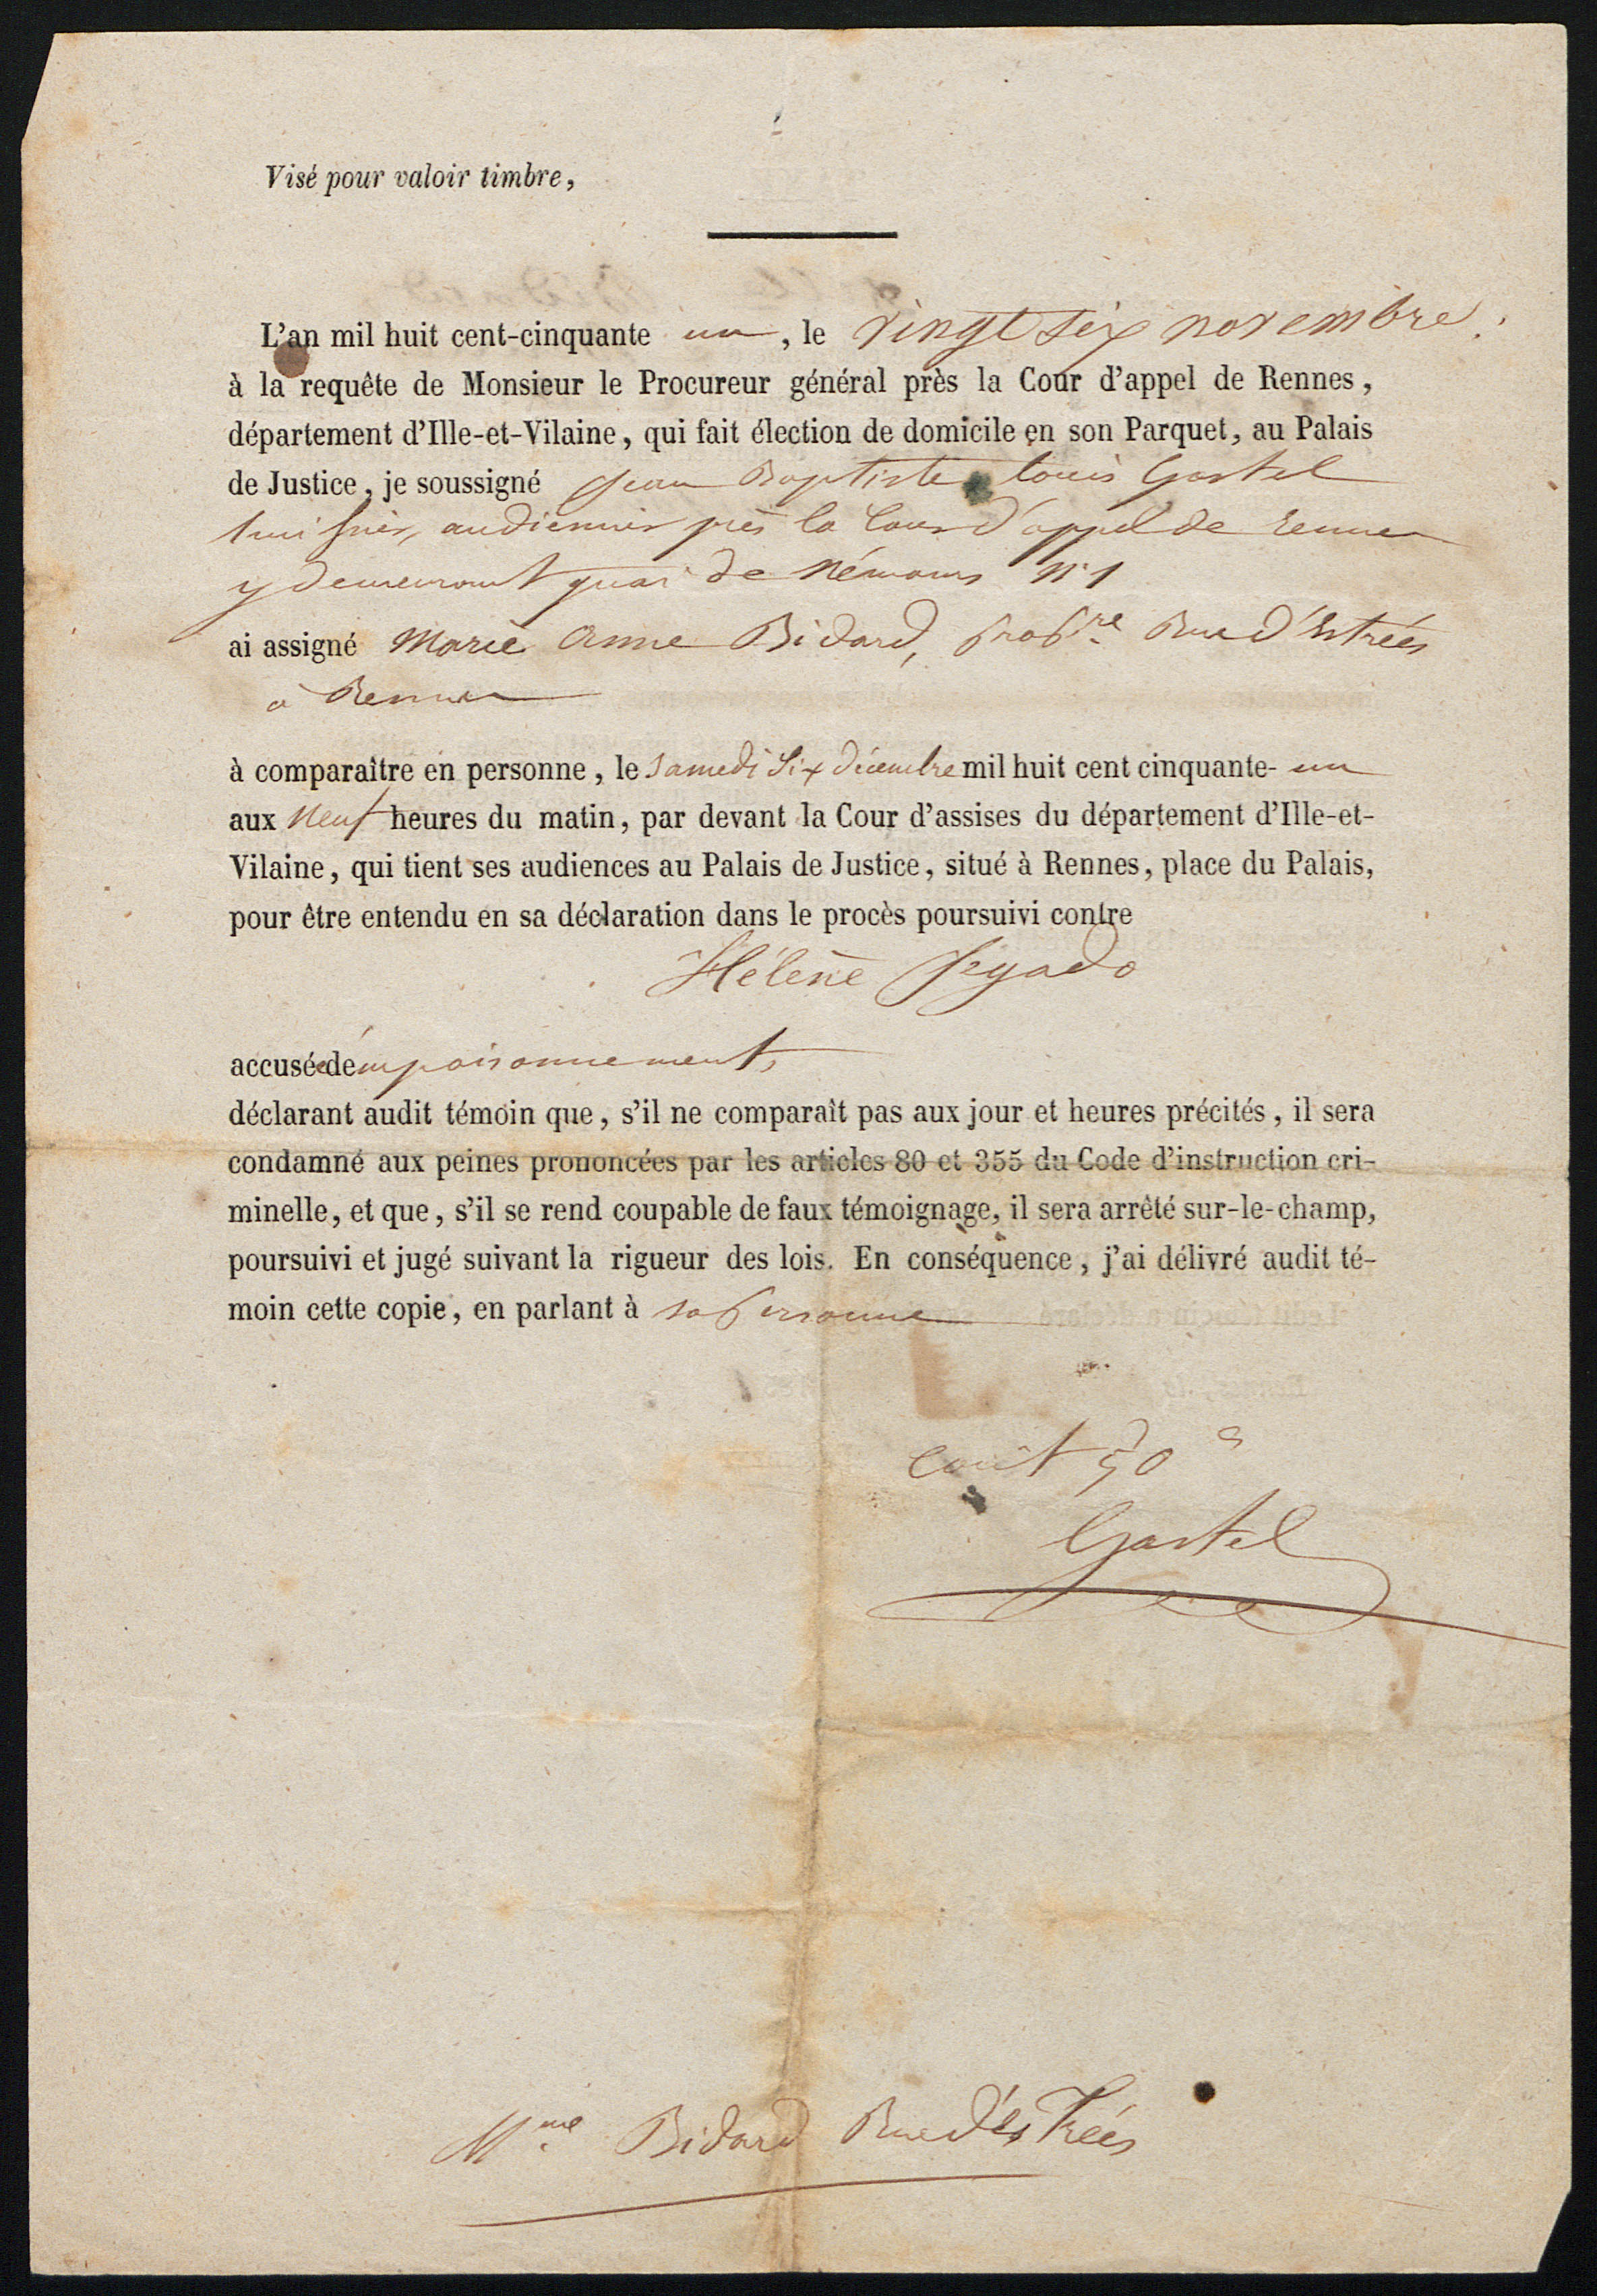 Visé pour valoir timbre,
L'an mil huit cent-cinquante un, le vingt six novembre.
à la requête de Monsieur le Procureur général près la Cour d'appel de Rennes,
département d'Ille-et-Vilaine, qui fait élection de domicile en son Parquet, au Palais
de Justice, je soussigné Jean Baptiste Louis Gastel
huissier, audiencier près la Cour d'appel de Rennes
y demeurant quai de Némours N° 1
ai assigné Marie Anne Bidard, prop.re Rue d'Estrées
à Rennes
à comparaître en personne, le Samedi Six décembre mil huit cent cinquante- un
aux Neuf heures du matin, par devant la Cour d'assises du département d'Ille-et-
Vilaine, qui tient ses audiences au Palais de Justice, situé à Rennes, place du Palais,
pour être entendu en sa déclaration dans le procès poursuivi contre
Hélène Jegado
accusée d'empoisonnement,
déclarant audit témoin que, s'il ne comparaît pas aux jour et heures précités, il sera
condamné aux peines prononcées par les articles 80 et 355 du Code d'instruction cri-
minelle, et que, s'il se rend coupable de faux témoignage, il sera arrêté sur-le-champ,
poursuivi et jugé suivant la rigueur des lois. En conséquence, j'ai délivré audit té-
moin cette copie, en parlant à sa personne
Coût 50 c
Gastel
Mme Bidard Rue d'Estrées